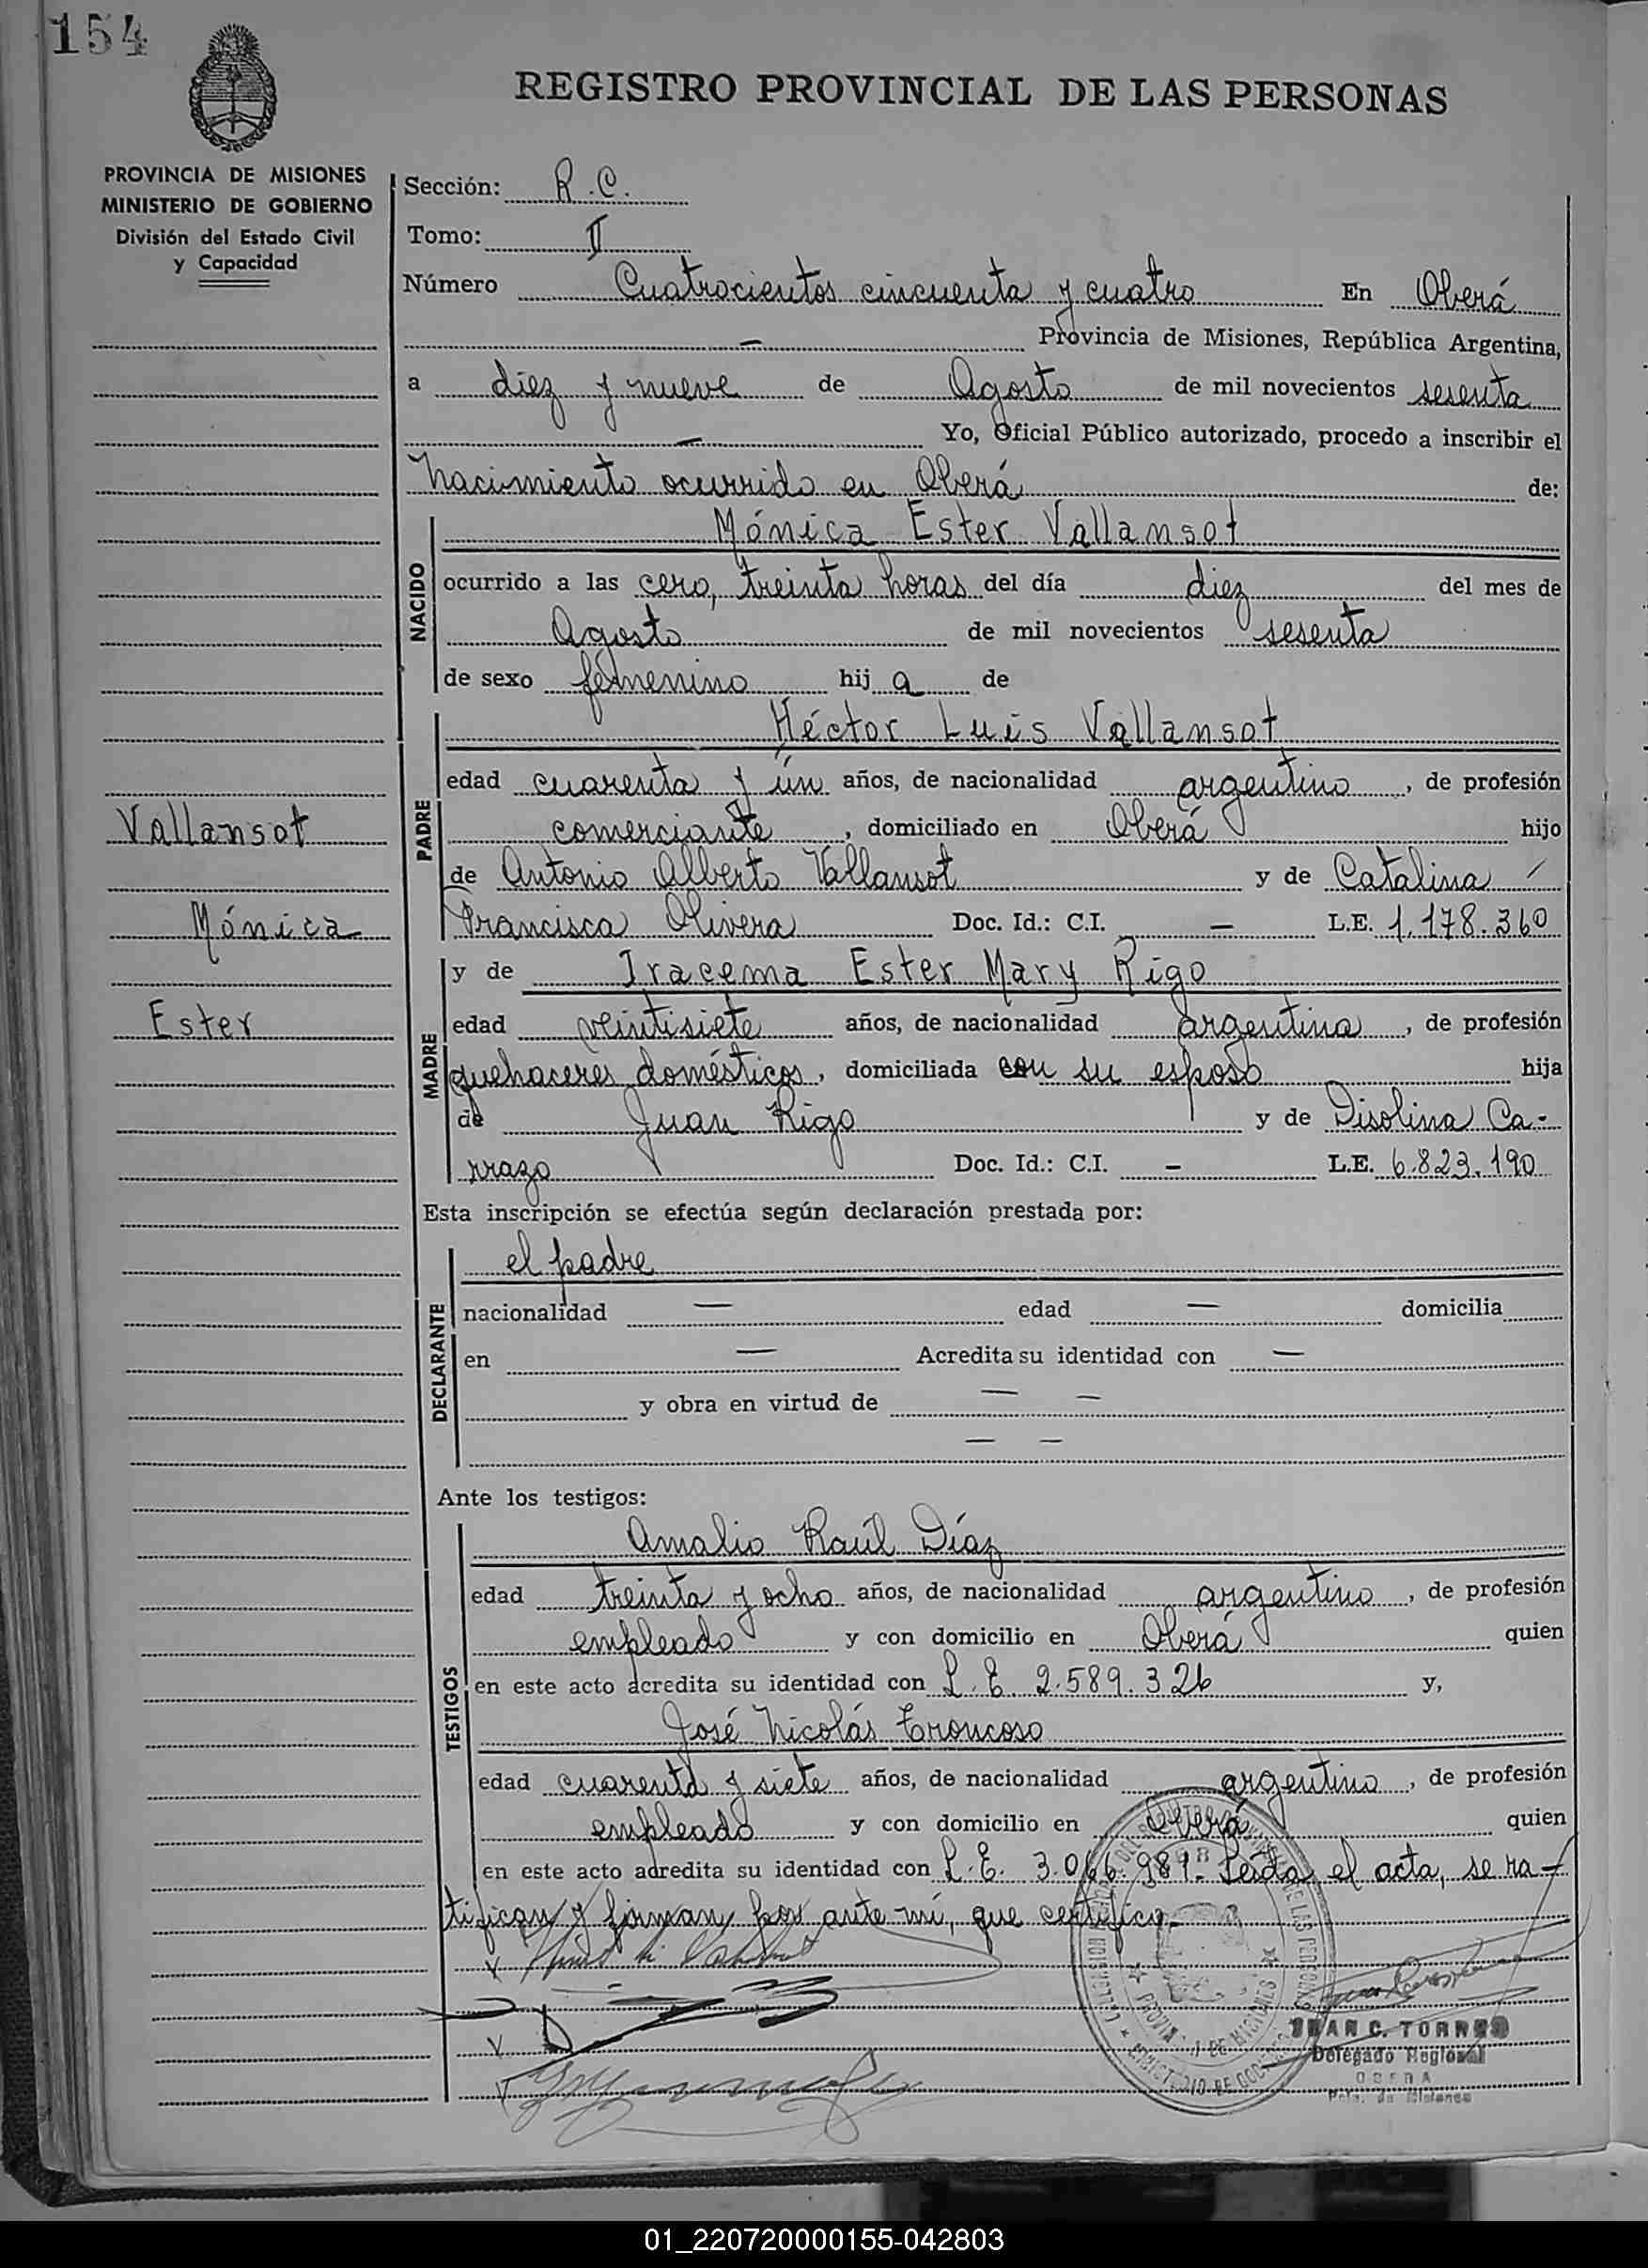 154
REGISTRO PROVINCIAL DE LAS PERSONAS
PROVINCIA DE MISIONES
MINISTERIO DE GOBIERNO
División del Estado Civil
y Capacidad
Sección: R.C.
Tomo: II
Número Cuatrocientos cincuenta y cuatro En Oberá
— Provincia de Misiones, República Argentina,
a diez y nueve de Agosto de mil novecientos sesenta
— Yo, Oficial Público autorizado, procedo a inscribir el
Nacimiento ocurrido en Oberá de:
NACIDO
Mónica Ester Vallansot
ocurrido a las cero, treinta horas del día diez del mes de
Agosto de mil novecientos sesenta
de sexo femenino hij a de
PADRE
Héctor Luis Vallansot
edad cuarenta y un años, de nacionalidad argentino, de profesión
comerciante, domiciliado en Oberá hijo
de Antonio Alberto Vallansot y de Catalina
Francisca Olivera Doc. Id.: C.I. — L.E. 1.178.360
Vallansot
Mónica
Ester
MADRE
y de Iracema Ester Mary Rigo
edad veintisiete años, de nacionalidad argentina, de profesión
quehaceres domésticos, domiciliada con su esposo hija
de Juan Rigo y de Disolina Ca-
rrazo Doc. Id.: C.I. — L.E. 6.823.190
Esta inscripción se efectúa según declaración prestada por:
DECLARANTE
el padre
nacionalidad — edad — domicilia
en — Acredita su identidad con —
y obra en virtud de — —
— —
Ante los testigos:
TESTIGOS
Amalio Raúl Díaz
edad treinta y ocho años, de nacionalidad argentino, de profesión
empleado y con domicilio en Oberá quien
en este acto acredita su identidad con L.E. 2.589.326 y,
José Nicolás Troncoso
edad cuarenta y siete años, de nacionalidad argentino, de profesión
empleado y con domicilio en Oberá quien
en este acto acredita su identidad con L.E. 3.066.981.- Leída el acta, se ra-
tifican y firman por ante mí, que certifico.-
JUAN C. TORRES
Delegado Regional
OBERA
Pcia. de Misiones
01_220720000155-042803